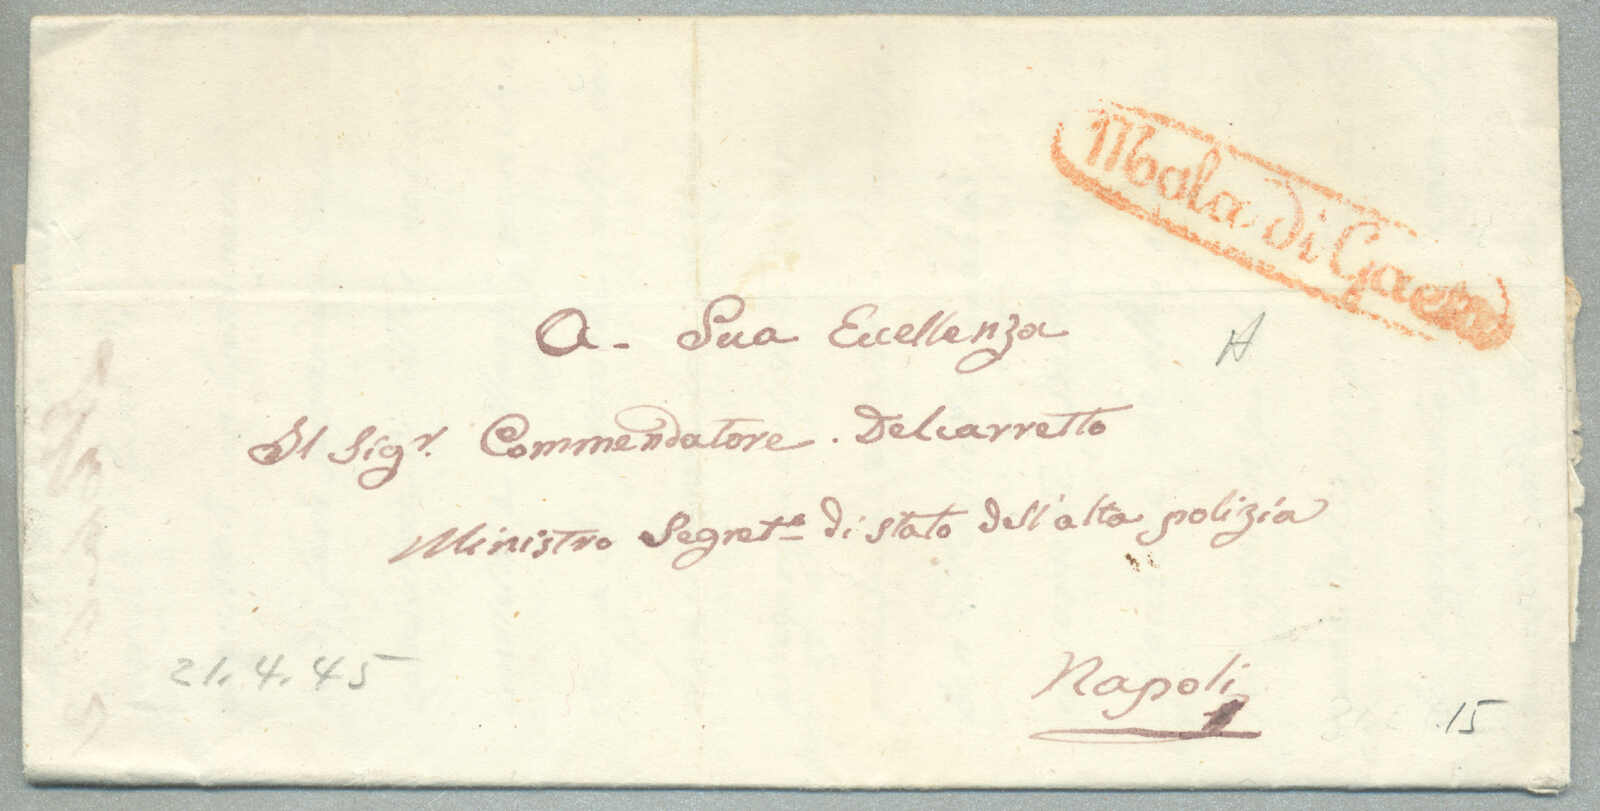 Mola di Gaeta
A - Sua Eccellenza
Il Sigr. Commendatore Delcarretto
Ministro Segret.o di Stato dell'alta polizia
Napoli
21.4.45
.15